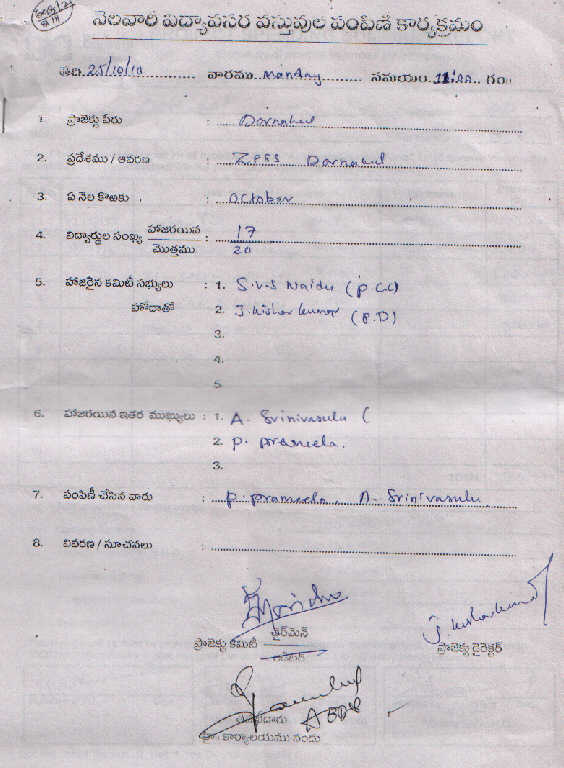 నెలవారీ విద్యావసర వస్తువుల పంపిణీ కార్యక్రమం
తేది. 25/10/10 వారము.. Monday సమయం. 11:00 గం.
1. ప్రాజెక్టు పేరు : Dornakal
2. ప్రదేశము / ఆవరణ : ZPSS Dornakal
3. ఏ నెల కొఱకు : October
4. విద్యార్థుల సంఖ్య హాజరయిన : 17
మొత్తము 20
5. హాజరైన కమిటీ సభ్యులు : 1. S.V.S Naidu (P CC)
హోదాతో 2. J. Kishor kumar (P.D)
3.
4.
5.
6. హాజరయిన ఇతర ముఖ్యులు : 1. A. Srinivasulu (
2. P. Prameela.
3.
7. పంపిణీ చేసిన వారు : P. Prameela, A. Srinivasulu
8. వివరణ / సూచనలు :
ప్రాజెక్టు కమిటీ ఛైర్‌మెన్
J. Kishor kumar
ప్రాజెక్టు డైరెక్టర్